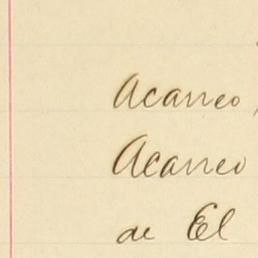 Acarreo
Acarreo
de El